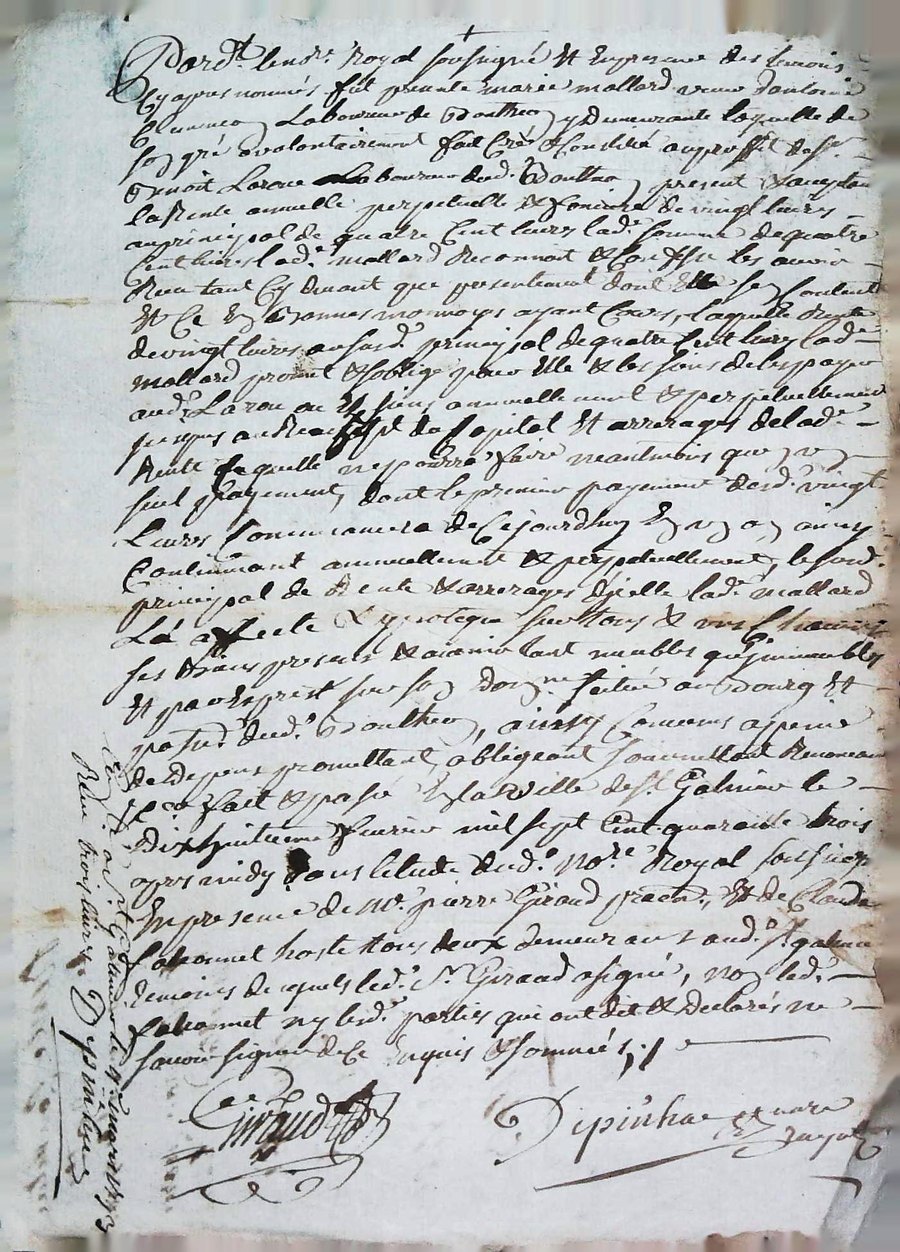 Pard.t le no.re Royal soussigné Et En presence des temoins
Cy apres nommés fut presente marie mallard veuve d'antoine
Laboureur de Bouthen y demeurante laquelle de
son gré & volontairement fait Créé & Constitué au proffit de s.r
Benoit Larue Laboureur dud. Bouthen present & acceptant
la Rente annuelle perpetuelle & fonciere de vingt livres
au principal de quatre Cent livres lad.e somme de quatre
Cent livres lad.e mallard Reconnoit & Confesse les avoir
Receu tant Cy devant que presentement dont Elle se Contente
Et Ce En bonnes monnoys ayant Cours, laquelle Rente
de vingt livres au susd. principal de quatre Cent livres lad.e
mallard promet & s'oblige pour Elle & les siens de les payer
aud. Larue ou Es siens annuellement & perpetuellement
jusques au Reachept du Capital Et arrerages de lad.e
Rente Lequelle ne pourra faire neantmoins que en un
seul payement, dont le premier payement desd. vingt
Livres Commencera de Cejourdhuy En un an ainsy
Continuant annuellement & perpetuellement, le susd.
principal de Rente & arrerages d'jcelle lad.e mallard
L'a affecté & ypotequé sur tous & uns Chacuns
ses biens presens & avenir tant meubles qu'jmmeubles
Et par Exprest sur son situé au Bourg Et
dud. Bouthen, ainsy Convenu a peine
de depens promettant, obligeant soumettant Renonceant
fait & passé En la ville de s.t Galmier le
Dixhuitieme fevrier mil sept Cent quarante trois
apres midy dans letude dud. No.re Royal soussigné
En presence de M.e pierre Giraud Et de Claude
hoste tous deux demeurant aud. s.t galmier
temoins desquels led. s.r Giraud a signé, non led.
ny lesd. parties qui ont dit & declarés ne
scavoir signer de Ce Enquis & sommés ./.
Giraud
Depinhac
a s.t Galmier le
Receu trois livres Depinhac